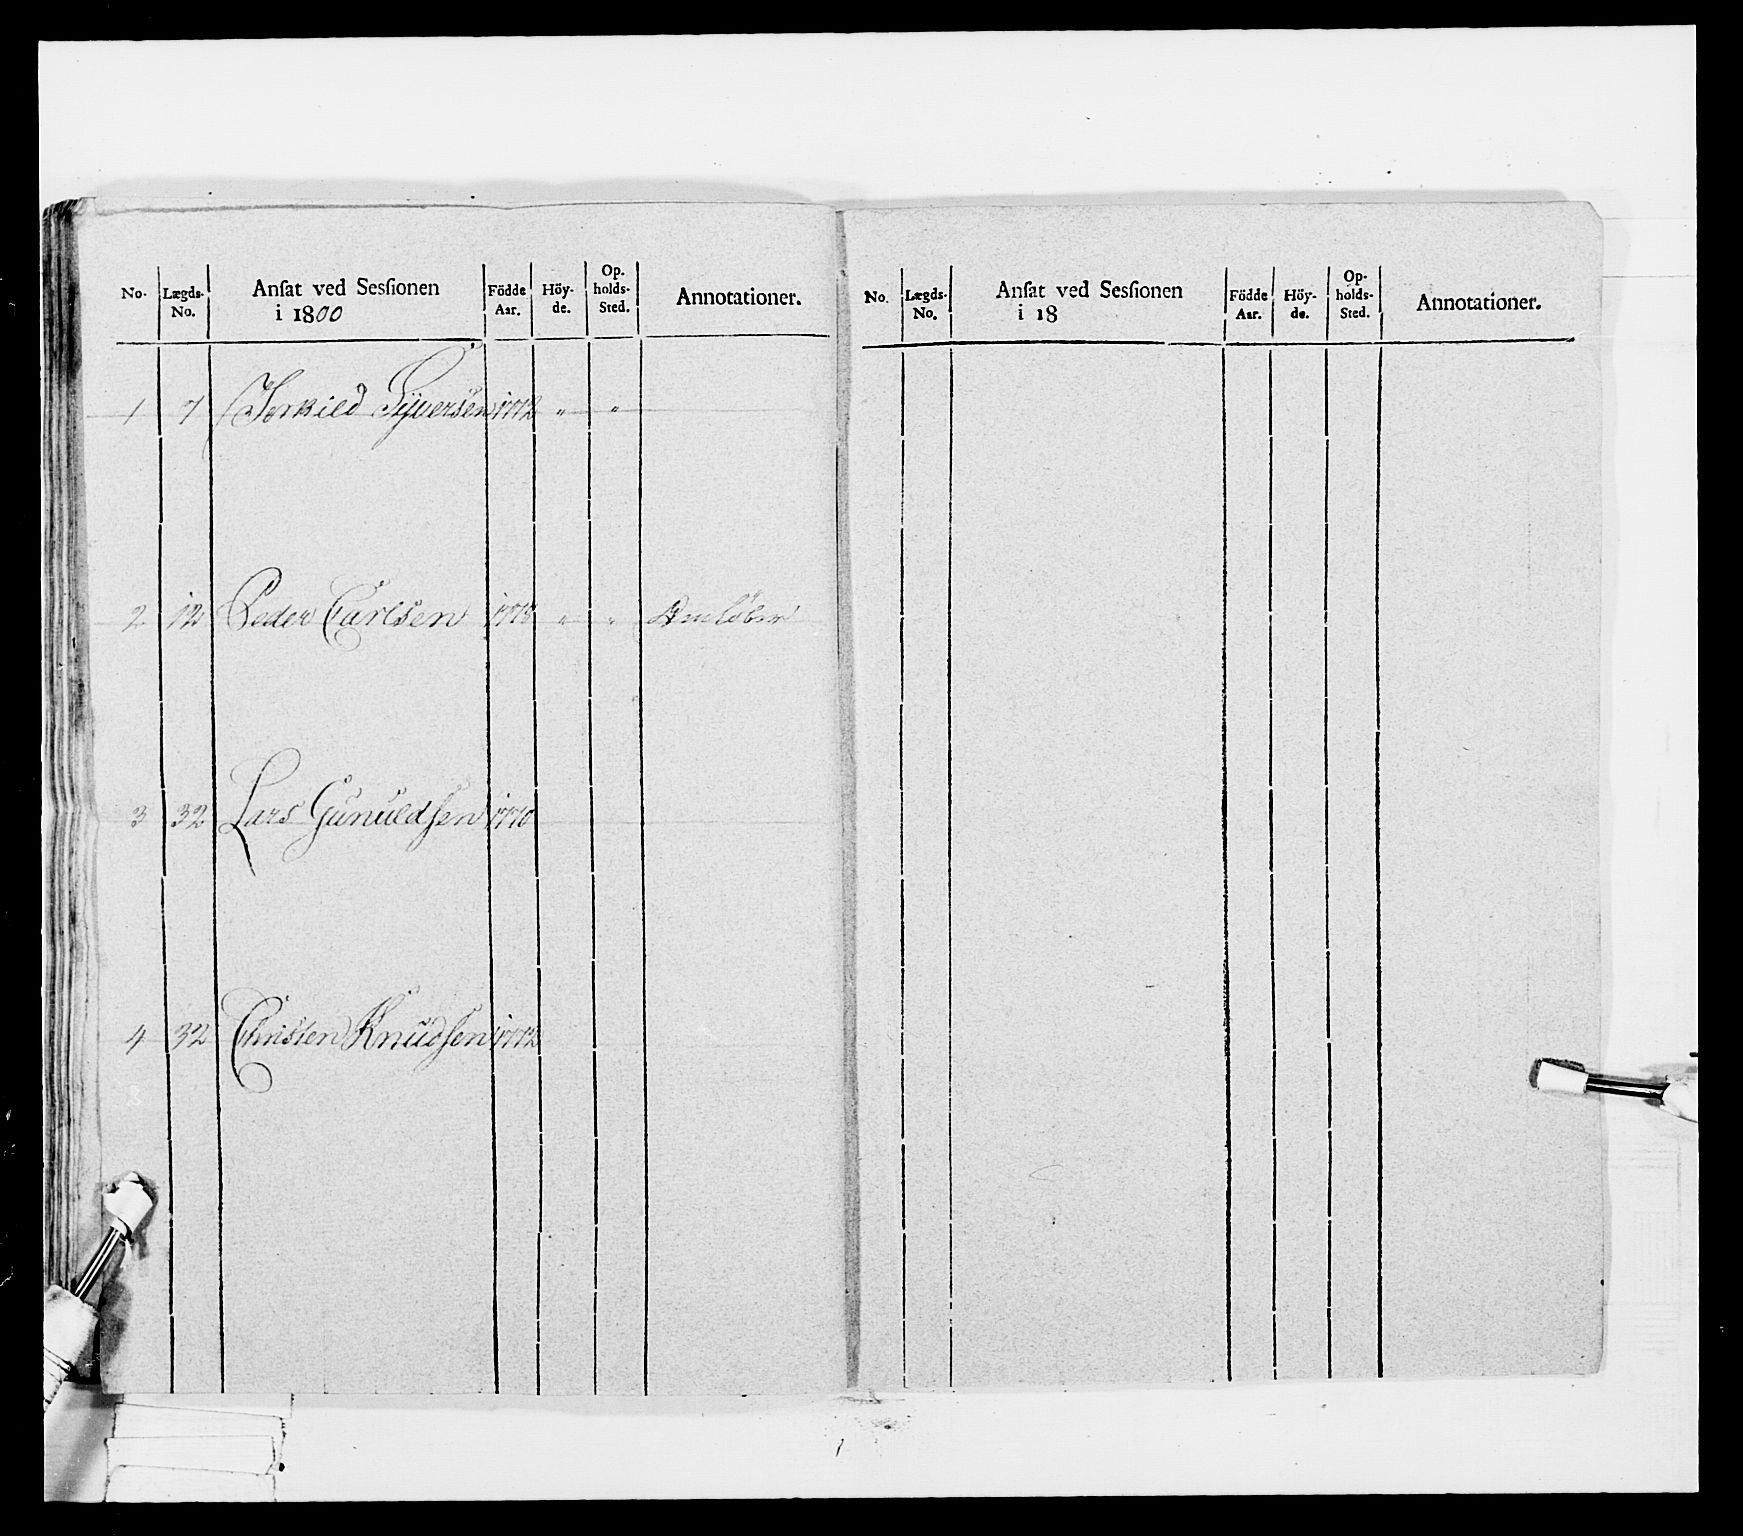 No. Lægds-No. Anſat ved Sesſionen i 1800 Födde Aar. Höy-de. Op-holds-Sted. Annotationer.
1 7 Torkild Syversen 1772 " "
2 12 Peder Carlsen 1778 " "
3 32 Lars Gunuldsen 1770
4 32 Christen Knudsen 1772
No. Lægds-No. Anſat ved Sesſionen i 18 Födde Aar. Höy-de. Op-holds-Sted. Annotationer.